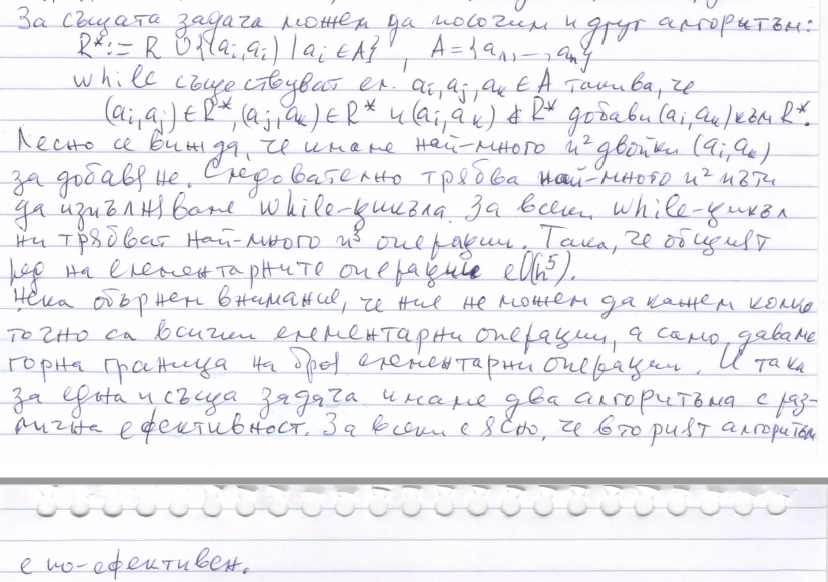 За същата задача можем да посочим и друг алгоритъм:
R*:= R ∪{(ai,ai) | ai ∈A} , A={a1,...,an}
while съществуват ел. ai,aj,ak ∈A такива, че
(ai,aj)∈R*,(aj,ak)∈R* и (ai,ak) ∉ R* добави (ai,ak) към R*.
Лесно се вижда, че имаме най-много n² двойки (ai,ak)
за добавяне. Следователно трябва най-много n² пъти
да изпълняваме while-цикъла. За всеки while-цикъл
ни трябват най-много n³ операции. Така, че общият
ред на елементарните операции е O(n⁵).
Нека обърнем внимание, че ние не можем да кажем колко
точно са всички елементарни операции, а само даваме
горна граница на броя елементарни операции. И така
за една и съща задача имаме два алгоритъма с раз-
лична ефективност. За всеки е ясно, че вторият алгоритъм
е по-ефективен.